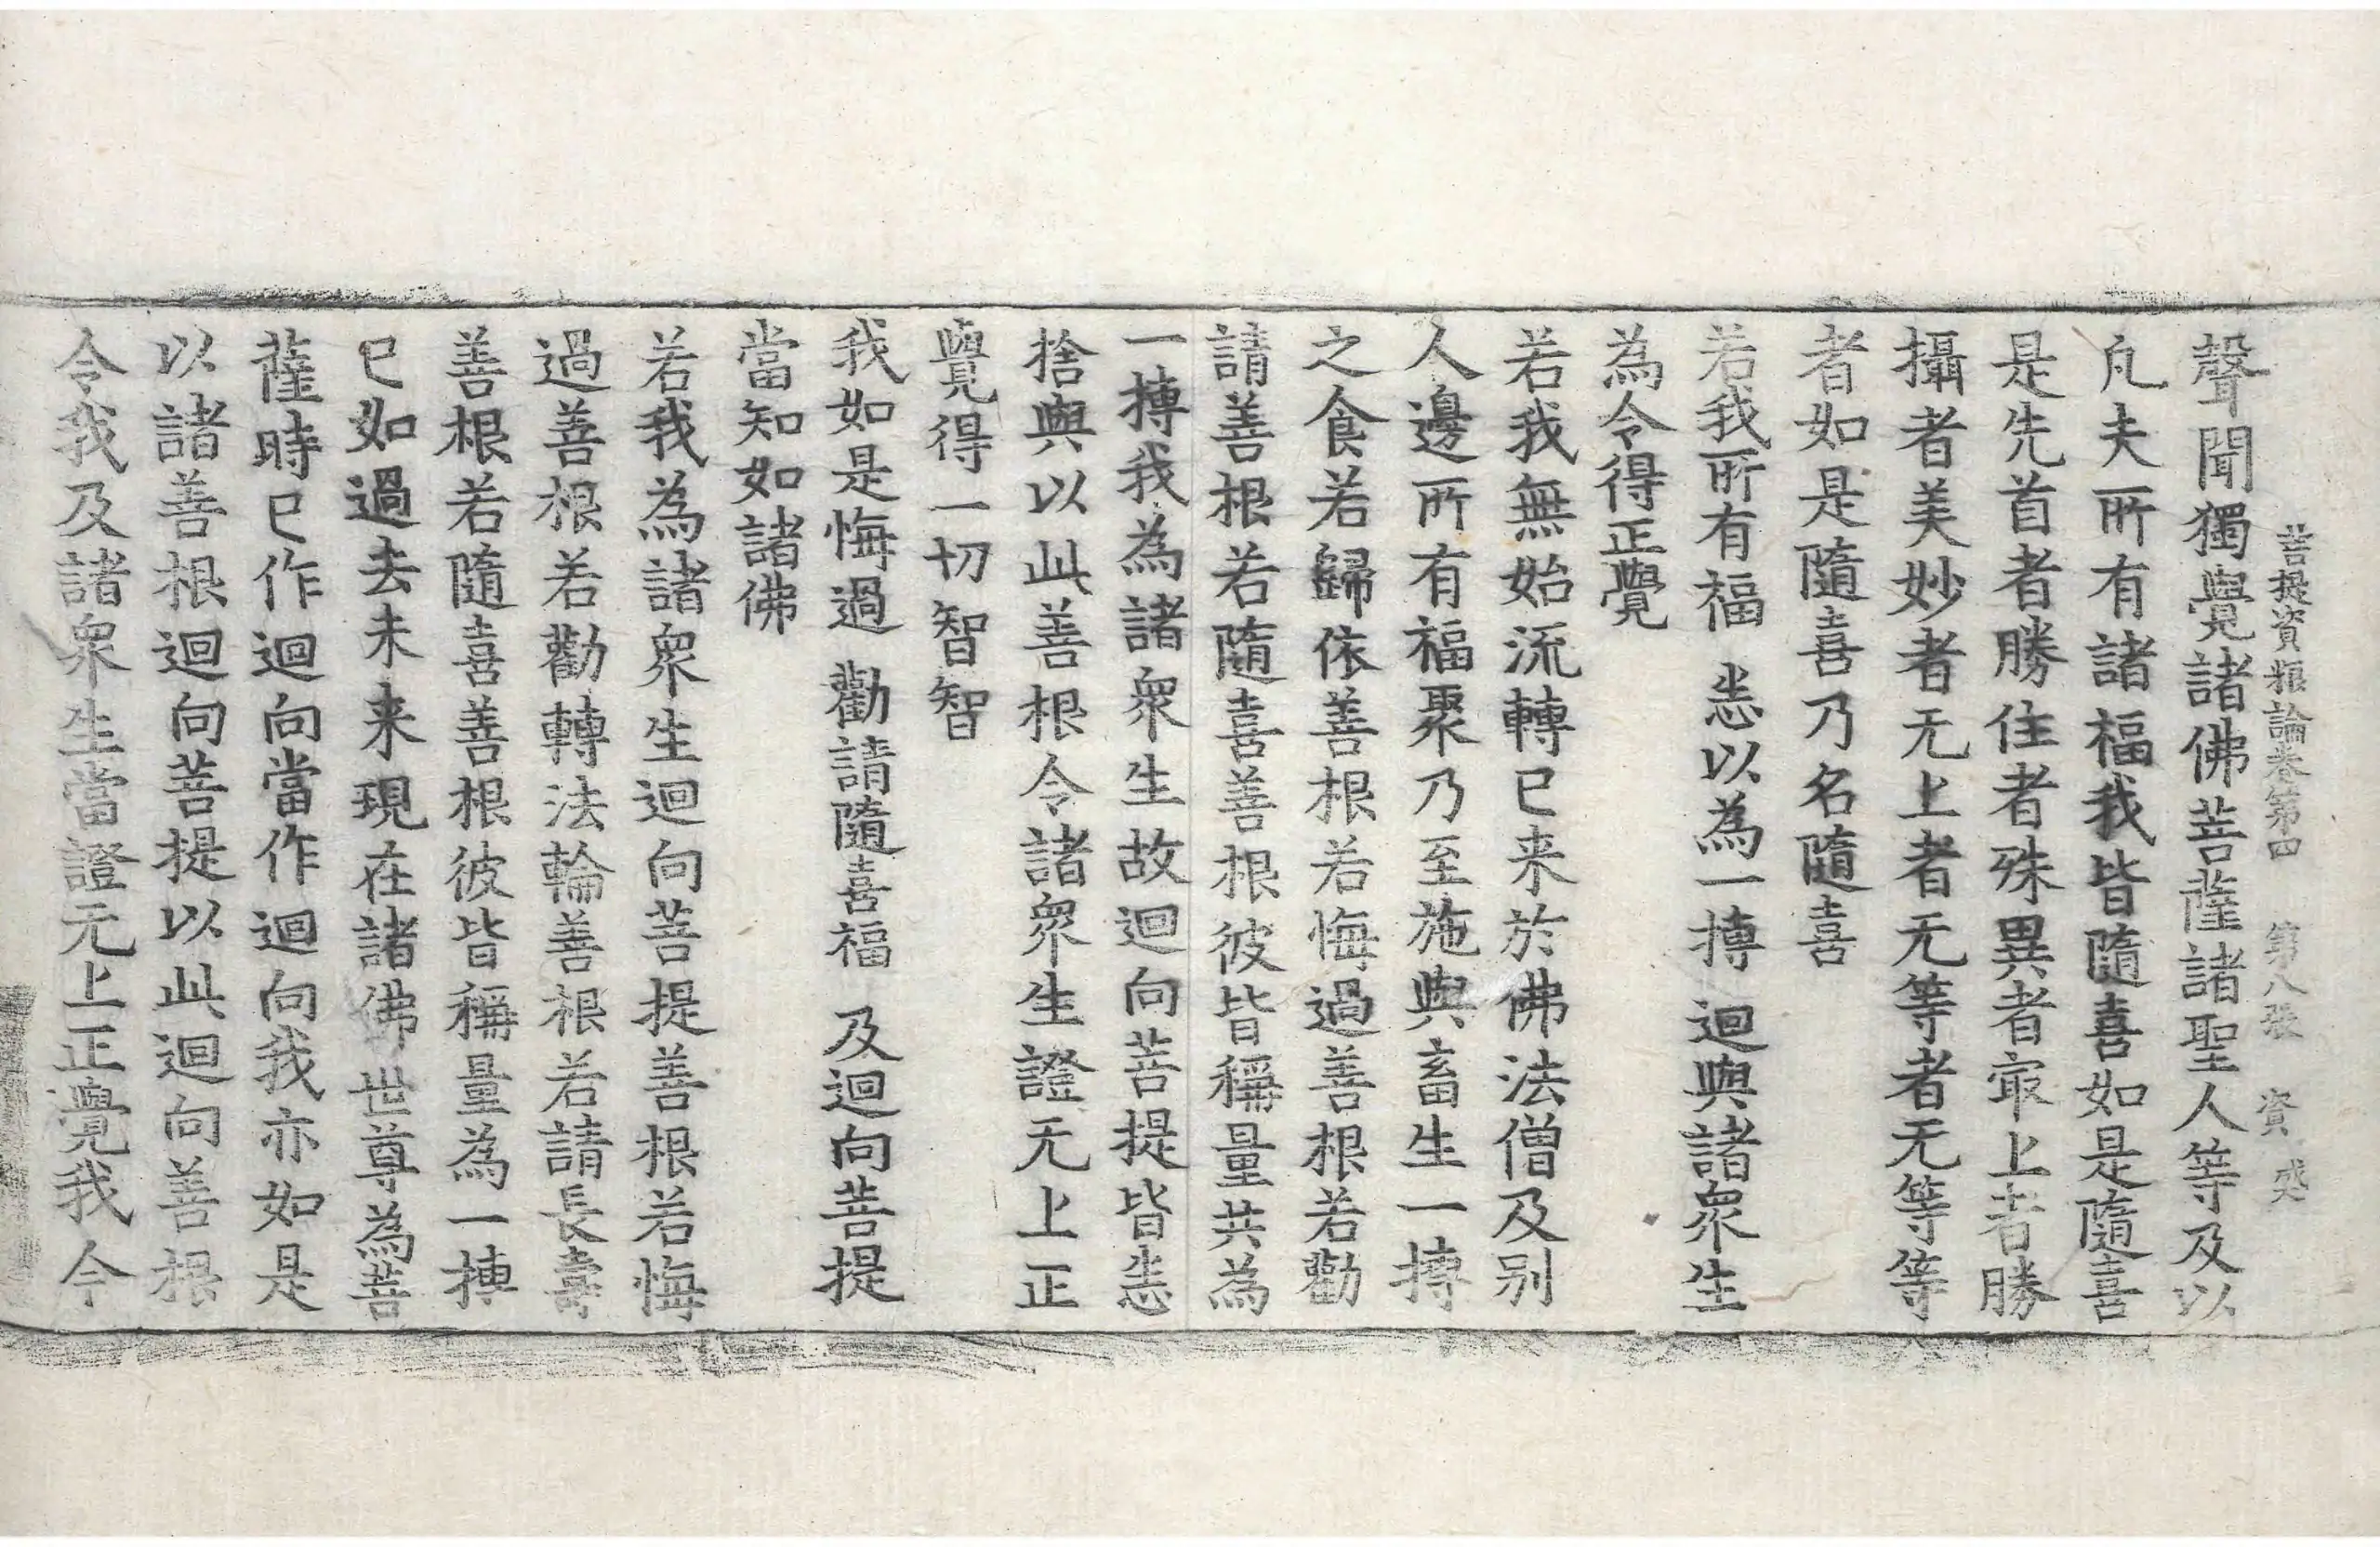 菩提資粮論卷第四　第八張　資
聲聞獨覺諸佛菩薩諸聖人等及以
凢夫所有諸福我皆隨喜如是隨喜
是先首者勝住者殊異者㝡上者勝
攝者美妙者无上者无等者无等等
者如是隨喜乃名隨喜
若我所有福　悉以為一摶　迴與諸衆生
為令得正覺
若我無始流轉已来於佛法僧及别
人邊所有福聚乃至施與畜生一摶
之食若歸依善根若悔過善根若勸
請善根若隨喜善根彼皆稱量共為
一摶我為諸衆生故迴向菩提皆悉
捨與以此善根令諸衆生證无上正
覺得一切智智
我如是悔過　勸請隨喜福　及迴向菩提
當知如諸佛
若我為諸衆生迴向菩提善根若悔
過善根若勸轉法輪善根若請長壽
善根若隨喜善根彼皆稱量為一摶
已如過去未来現在諸佛世尊為菩
薩時已作迴向當作迴向我亦如是
以諸善根迴向菩提以此迴向善根
令我及諸衆生當證无上正覺我今